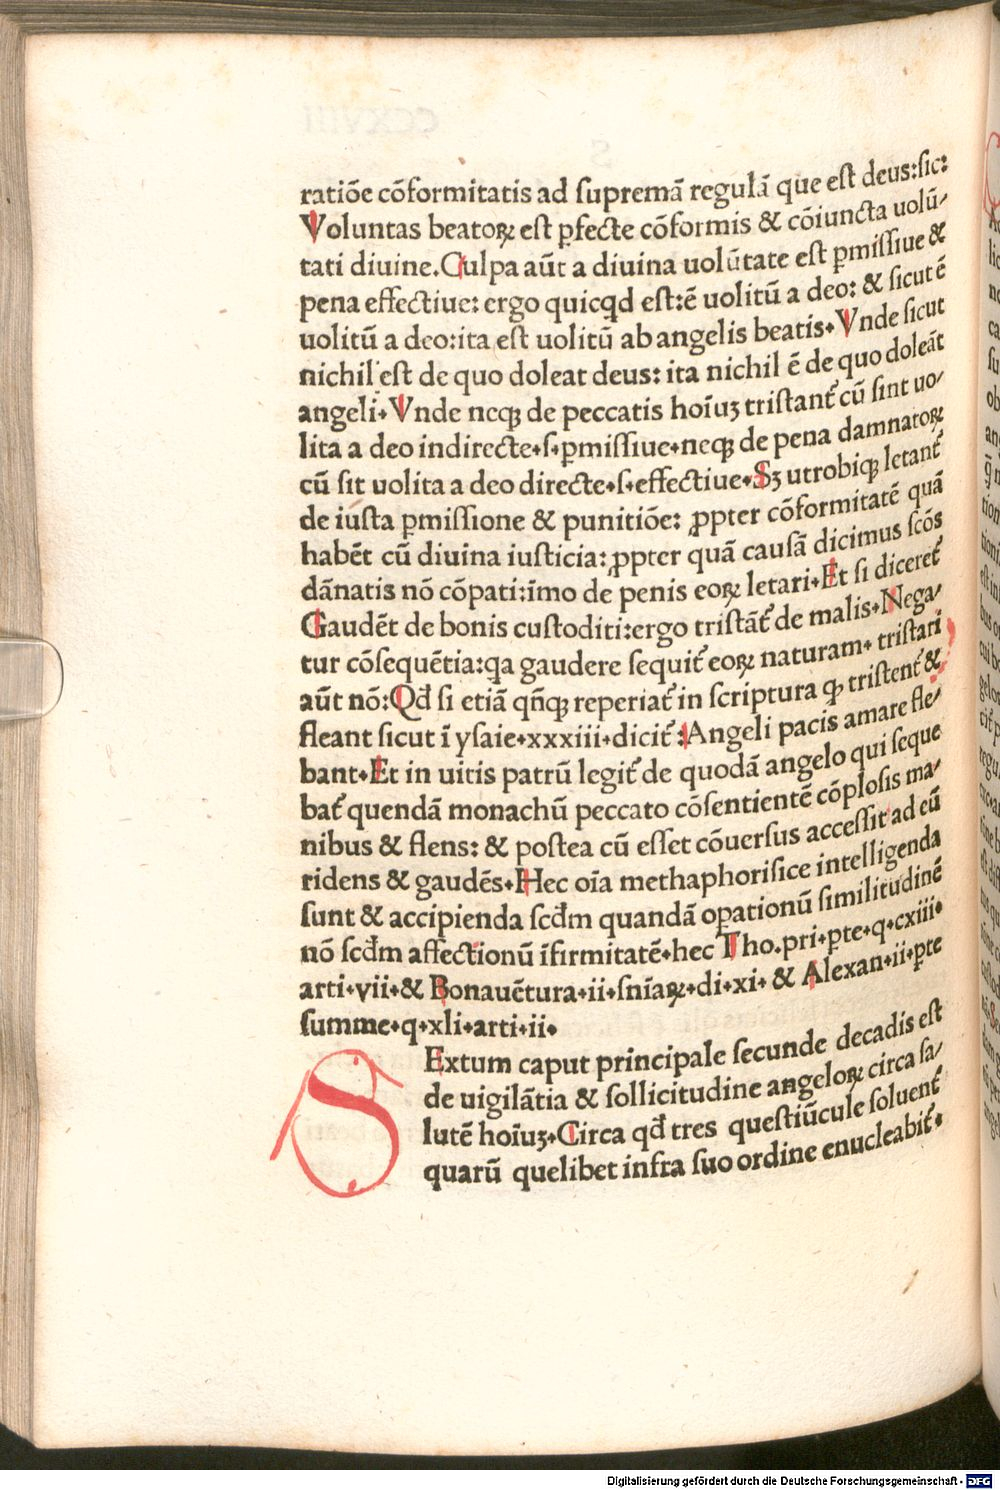 ratiōe cōformitatis ad ſupremā regulā que eſt deus:ſic:
Voluntas beatoꝝ eſt ꝑfecte cōformis & cōiuncta uolū⸗
tati diuine.Culpa aūt a diuina uolūtate eſt ꝑmiſſiue &
pena effectiue: ergo quicqd eſt:ē uolitū a deo: & ſicut ē
uolitū a deo:ita eſt uolitū ab angelis beatis.Vnde ſicut
nichil eſt de quo doleat deus: ita nichil ē de quo doleāt
angeli.Vnde neqꝫ de peccatis hoīuꝫ triſtant᷑ cū ſint uo⸗
lita a deo indirecte.ſ.ꝑmiſſiue.neqꝫ de pena damnatoꝝ
cū ſit uolita a deo directe.ſ.effectiue.Sꝫ utrobiqꝫ letant᷑
de iuſta ꝑmiſſione & punitiōe: ꝓpter cōformitatē quā
habēt cū diuina iuſticia: ꝓpter quā cauſā dicimus ſcōs
dānatis nō cōpati:īmo de penis eoꝝ letari.Et ſi diceret᷑
Gaudēt de bonis cuſtoditi:ergo triſtāt᷑ de malis.Nega⸗
tur cōſequētia:qa gaudere ſequit᷑ eoꝝ naturam. triſtari
aūt nō:Qđ ſi etiā qn̄qꝫ reperiat᷑ in ſcriptura ꝙ triſtent᷑ &
fleant ſicut ī yſaie.xxxiii.dicit᷑:Angeli pacis amare fle⸗
bant.Et in uitis patrū legit᷑ de quodā angelo qui ſeque
bat᷑ quendā monachū peccato cōſentientē cōploſis ma⸗
nibus & flens: & poſtea cū eſſet cōuerſus acceſſit ad eū
ridens & gaudēs.Hec oīa methaphoriſice intelligenda
ſunt & accipienda ſcđm quandā oꝑationū ſimilitudinē
nō ſcđm affectionū īfirmitatē.hec Tho.pri.ꝑte.q.cxiii.
arti.vii.& Bonauētura.ii.ſnīaꝝ.di.xi. & Alexan.ii.ꝑte
ſumme.q.xli.arti.ii.
SExtum caput principale ſecunde decadis eſt
de uigilātia & ſollicitudine angeloꝝ circa ſa⸗
lutē hoīuꝫ.Circa qđ tres queſtiūcule ſoluent᷑
quarū quelibet infra ſuo ordine enucleabit᷑.
Digitalisierung gefördert durch die Deutsche Forschungsgemeinschaft - DFG